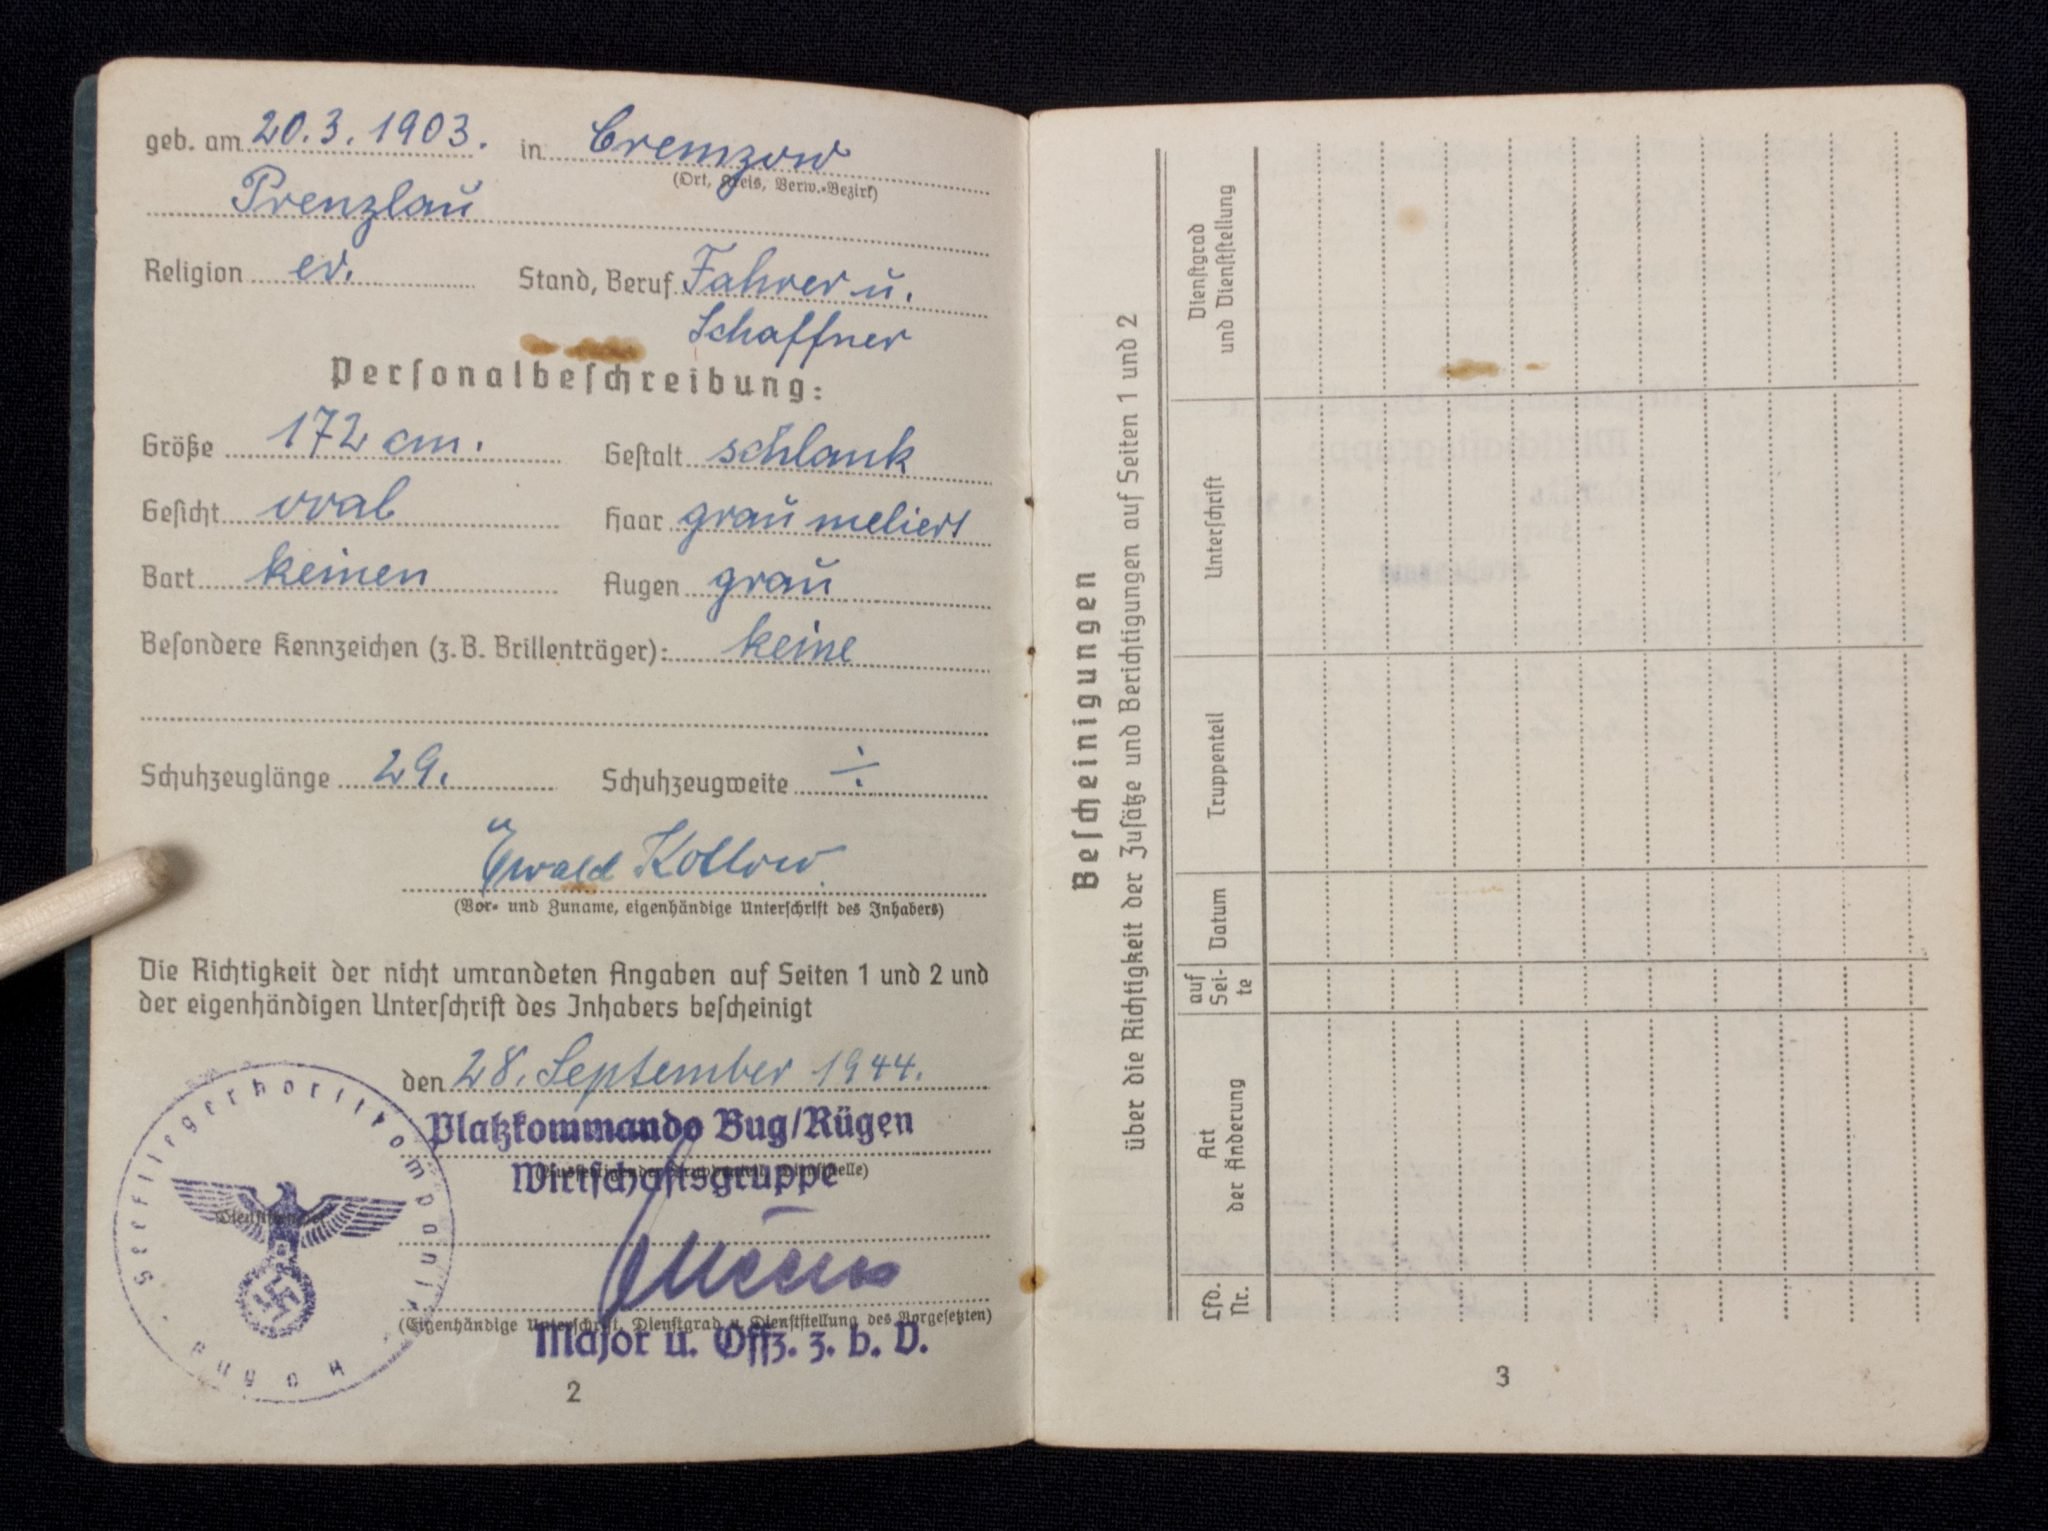 geb. am 20.3.1903. in Cremzow
(Ort, Kreis, Verw.-Bezirk)
Prenzlau
Religion ev. Stand, Beruf Fahrer u.
Schaffner
Personalbeschreibung:
Größe 172 cm. Gestalt schlank
Gesicht oval Haar grau meliert
Bart keinen Augen grau
Besondere Kennzeichen (z. B. Brillenträger): keine
Schuhzeuglänge 29. Schuhzeugweite ÷
Ewald Kollow.
(Vor- und Zuname, eigenhändige Unterschrift des Inhabers)
Die Richtigkeit der nicht umrandeten Angaben auf Seiten 1 und 2 und
der eigenhändigen Unterschrift des Inhabers bescheinigt
den 28. September 1944.
Platzkommando Bug/Rügen
Wirtschaftsgruppe
(Eigenhändige Unterschrift, Dienstgrad u. Dienststellung des Vorgesetzten)
Major u. Offz. z. b. V.
Seefliegerhorstkompanie
2
Bescheinigungen
über die Richtigkeit der Zusätze und Berichtigungen auf Seiten 1 und 2
Lfd. Nr.
Art der Änderung
auf Sei-te
Datum
Truppenteil
Unterschrift
Dienstgrad und Dienststellung
3